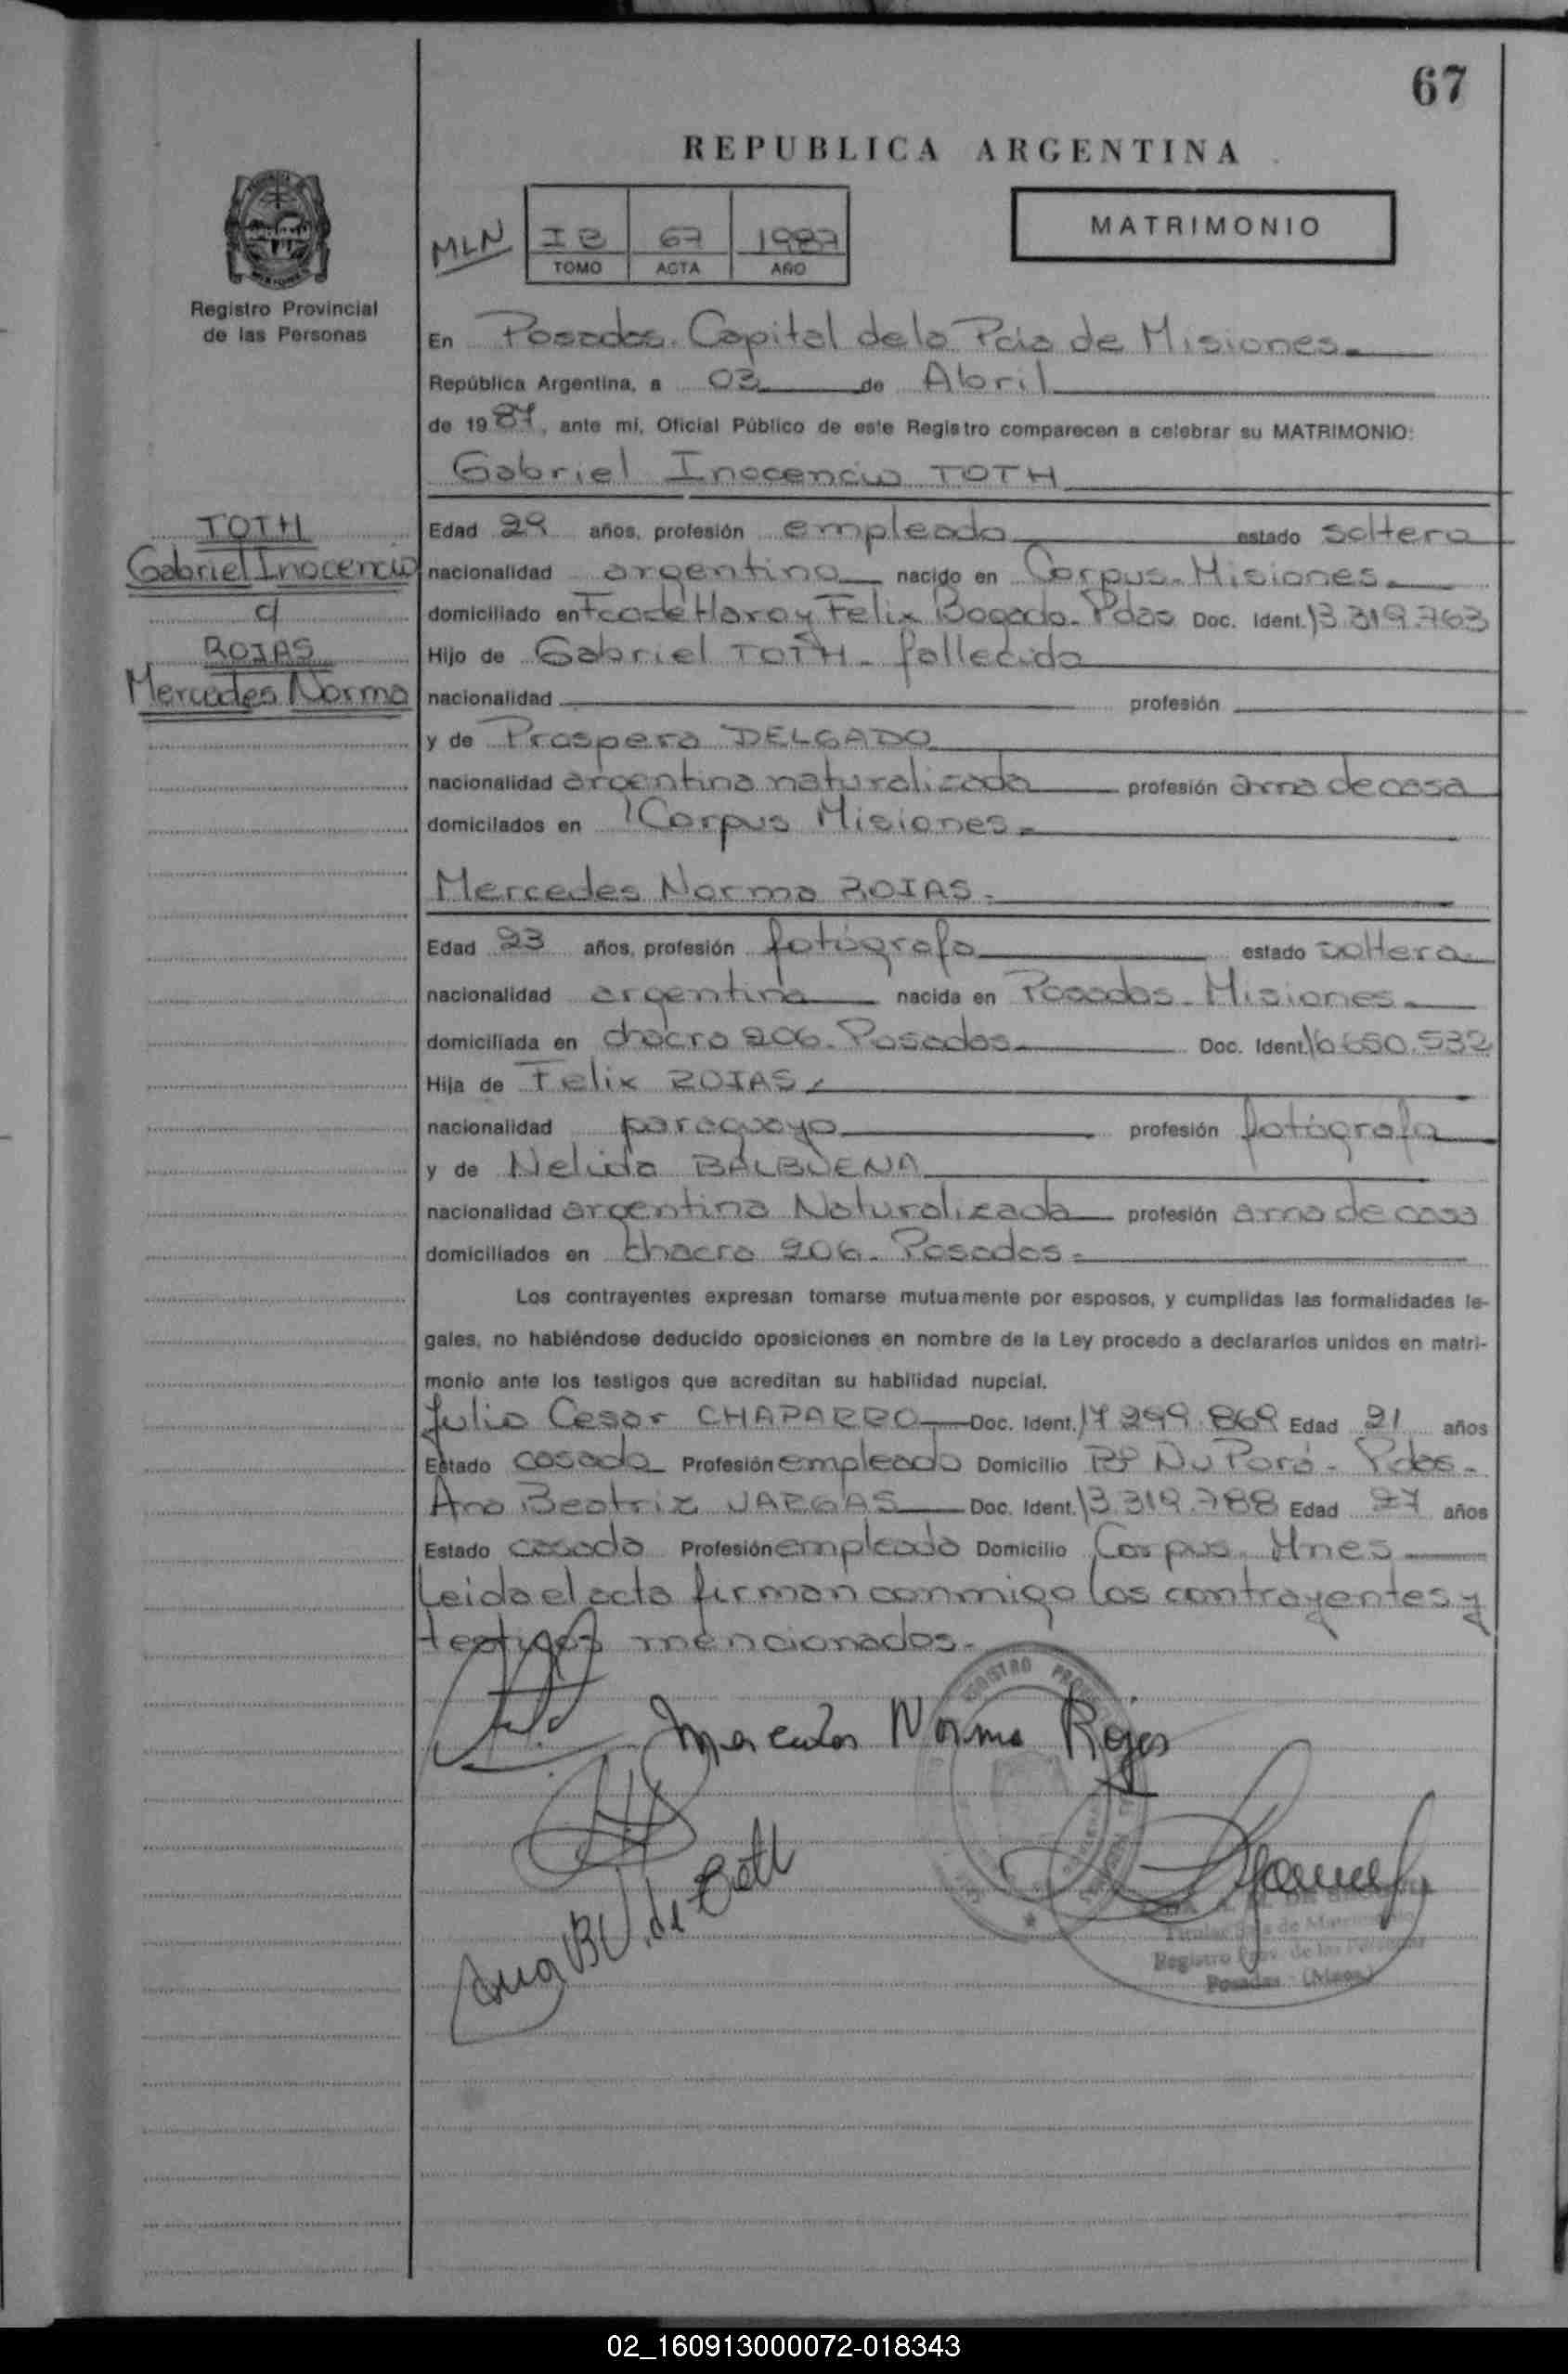 67
REPUBLICA ARGENTINA
MATRIMONIO
MLN
I B 67 1987
TOMO ACTA AÑO
Registro Provincial
de las Personas
En Posadas. Capital de la Pcia de Misiones.
República Argentina, a 03 de Abril
de 1987, ante mí, Oficial Público de este Registro comparecen a celebrar su MATRIMONIO:
Gabriel Inocencio TOTH
TOTH
Gabriel Inocencio
c/
ROJAS
Mercedes Norma
Edad 29 años, profesión empleado estado soltero
nacionalidad argentino nacido en Corpus. Misiones.
domiciliado en Fco de Haro y Felix Bogado. Pdas Doc. Ident. 13.319.763
Hijo de Gabriel TOTH. fallecido
nacionalidad profesión
y de Prospera DELGADO
nacionalidad argentina naturalizada profesión ama de casa
domicilados en Corpus Misiones.
Mercedes Norma ROJAS.
Edad 23 años, profesión fotógrafa estado soltera
nacionalidad argentina nacida en Posadas. Misiones.
domiciliada en chacra 206. Posadas. Doc. Ident. 16.650.532
Hija de Felix ROJAS.
nacionalidad paraguayo profesión fotógrafo
y de Nelida BALBUENA
nacionalidad argentina Naturalizada profesión ama de casa
domiciliados en chacra 206. Posadas.
Los contrayentes expresan tomarse mutuamente por esposos, y cumplidas las formalidades le-
gales, no habiéndose deducido oposiciones en nombre de la Ley procedo a declararlos unidos en matri-
monio ante los testigos que acreditan su habilidad nupcial.
Julio Cesar CHAPARRO Doc. Ident. 17.299.869 Edad 21 años
Estado casado Profesión empleado Domicilio Bº Ñu Porá. Pdas.
Ana Beatriz VARGAS Doc. Ident. 13.319.788 Edad 27 años
Estado casada Profesión empleada Domicilio Corpus. Mnes
Leida el acta firman conmigo los contrayentes y
testigos mencionados.
Mercedes Norma Rojas
Ana B V. de
Titular de Matrimonio
Registro Prov. de las Personas
Posadas - (Mnes.)
02_160913000072-018343